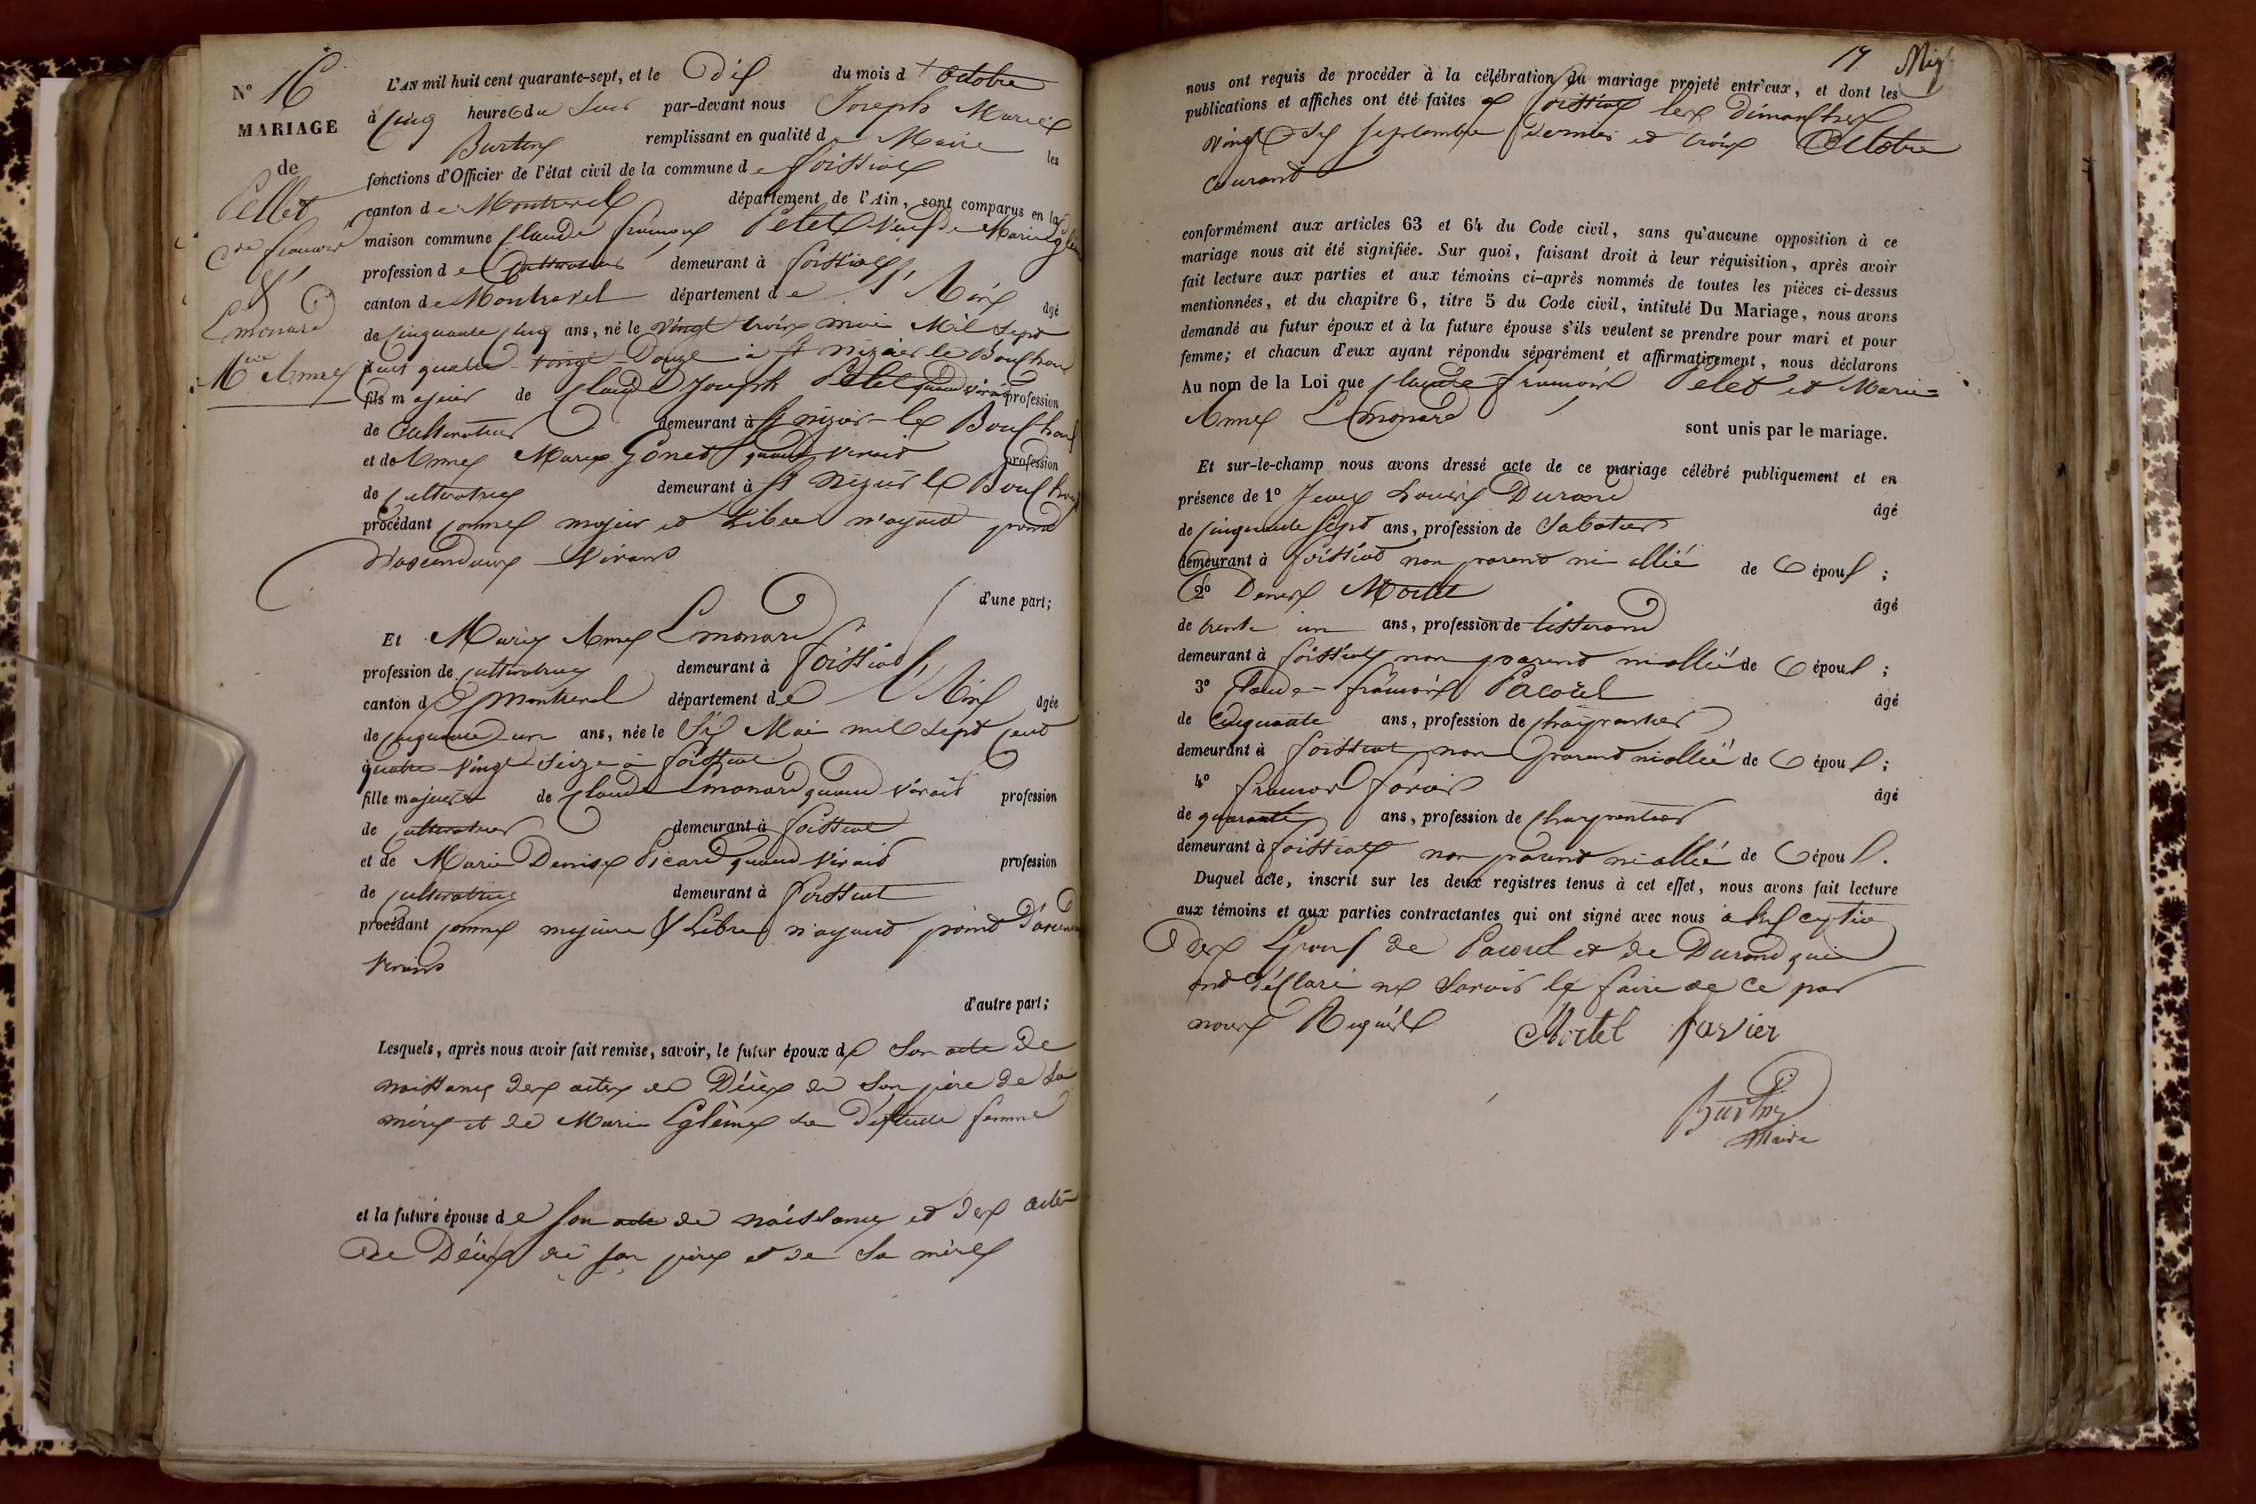 N° 16
MARIAGE
de
Pellet
Cde françois
&
Emonard
Mie Anne
L'AN mil huit cent quarante-sept, et le Dix du mois d'octobre
à Cinq heures du Soir par-devant nous Joseph Marie
Burtin remplissant en qualité de Maire les
fonctions d'Officier de l'état civil de la commune de foissiat
canton de Montrevel département de l'Ain, sont comparus en la
maison commune Claude françois Pelet Veuf de Marie
profession de Cultivateur demeurant à foissiat
canton de Montrevel département de L'Ain âgé
de Cinquante Cinq ans, né le vingt trois mai Mil Sept
Cent quatre vingt Douze à St nizier le Bouchoux
fils majeur de Claude Joseph Pelet quand vivait profession
de Cultivateur demeurant à St nizier le Bouchoux
et de Anne Marie Gonet quand vivait profession
de Cultivatrice demeurant à St Nizier le Bouchoux
procédant comme majeur et Libre n'ayant point
D'ascendans Vivans
d'une part;
Et Marie Anne Emonard
profession de Cultivatrice demeurant à foissiat
canton de Montrevel département de L'Ain âgée
de Cinquante un ans, née le Six Mai mil Sept Cent
quatre Vingt Seize à foissiat
fille majeure de Claude Emonard quand Vivait profession
de Cultivateur demeurant à foissiat
et de Marie Denise Picard quand Vivait profession
de Cultivatrice demeurant à foissiat
procédant comme majeure & Libre n'ayant point D'ascendans
Vivans
d'autre part;
Lesquels, après nous avoir fait remise, savoir, le futur époux de Son acte de
naissance des actes de Décès de Son père de Sa
mère et de Marie Eglème Sa Défunte femme
et la future épouse de Son acte de naissance et des actes
de Décès de Son père et de Sa mère
17
nous ont requis de procéder à la célébration du mariage projeté entr'eux, et dont les
publications et affiches ont été faites à foissiat les Dimanches
vingt Six Septembre Dernier et trois Octobre
Courant
conformément aux articles 63 et 64 du Code civil, sans qu'aucune opposition à ce
mariage nous ait été signifiée. Sur quoi, faisant droit à leur réquisition, après avoir
fait lecture aux parties et aux témoins ci-après nommés de toutes les pièces ci-dessus
mentionnées, et du chapitre 6, titre 5 du Code civil, intitulé Du Mariage, nous avons
demandé au futur époux et à la future épouse s'ils veulent se prendre pour mari et pour
femme; et chacun d'eux ayant répondu séparément et affirmativement, nous déclarons
Au nom de la Loi que Claude françois Pelet et Marie=
Anne Emonard sont unis par le mariage.
Et sur-le-champ nous avons dressé acte de ce mariage célébré publiquement et en
présence de 1° Jean Louis Durand âgé
de Cinquante Sept ans, profession de Sabotier
demeurant à foissiat non parent ni allié des époux;
2° Denis Mortel âgé
de trente un ans, profession de tisserand
demeurant à foissiat non parent ni allié des époux;
3° Claude françois Pacorel âgé
de Cinquante ans, profession de Charpentier
demeurant à foissiat non parent ni allié des époux;
4° françois favier âgé
de quarante ans, profession de Charpentier
demeurant à foissiat non parent ni allié des époux.
Duquel acte, inscrit sur les deux registres tenus à cet effet, nous avons fait lecture
aux témoins et aux parties contractantes qui ont signé avec nous à l'exception
Des Epoux de Pacorel et de Durand qui
ont Déclaré ne Savoir le faire de ce par
nous Requis Mortel favier
Burtin
Maire